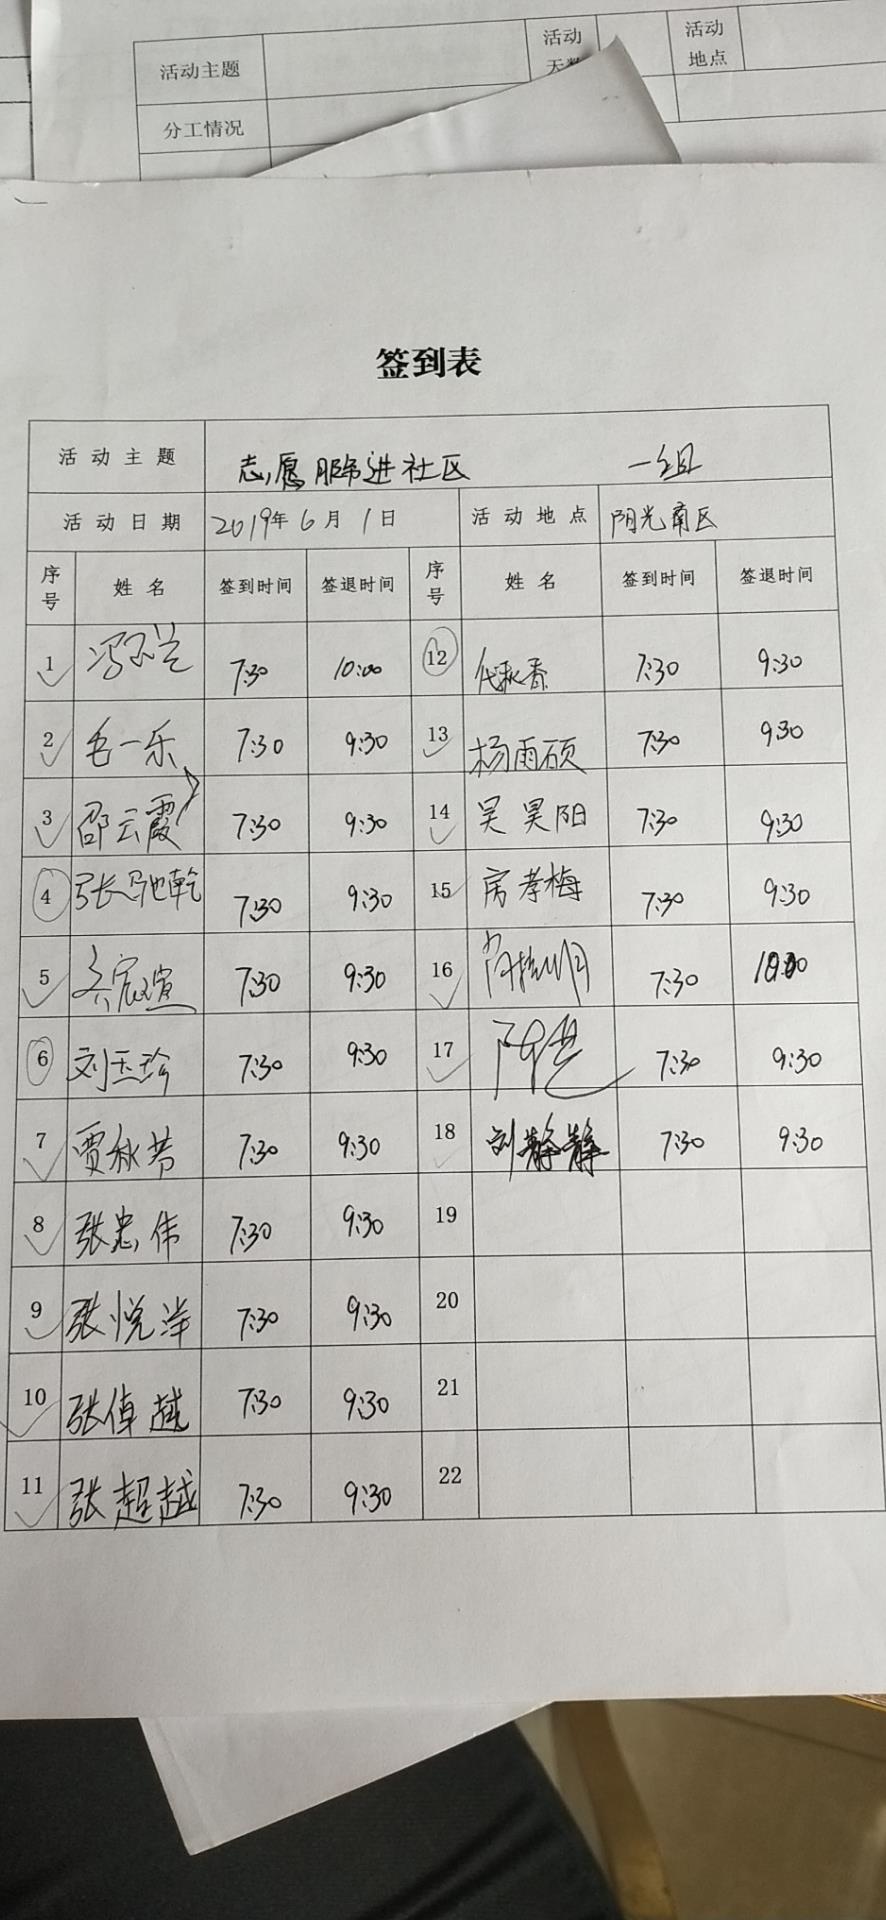 活动主题 活动 活动
天数 地点
分工情况
签到表
活动主题 志愿服务进社区 一组
活动日期 2019年6月1日 活动地点 阳光南区
序号 姓名 签到时间 签退时间 序号 姓名 签到时间 签退时间
1 7:30 10:00 12 代秋香 7:30 9:30
2 毛一乐 7:30 9:30 13 杨雨硕 7:30 9:30
3 邵云霞 7:30 9:30 14 吴昊阳 7:30 9:30
4 张驰乾 7:30 9:30 15 房孝梅 7:30 9:30
5 7:30 9:30 16 7:30 10:00
6 刘玉珍 7:30 9:30 17 7:30 9:30
7 贾秋芳 7:30 9:30 18 刘静静 7:30 9:30
8 张忠伟 7:30 9:30 19
9 张悦洋 7:30 9:30 20
10 张倬越 7:30 9:30 21
11 张超越 7:30 9:30 22